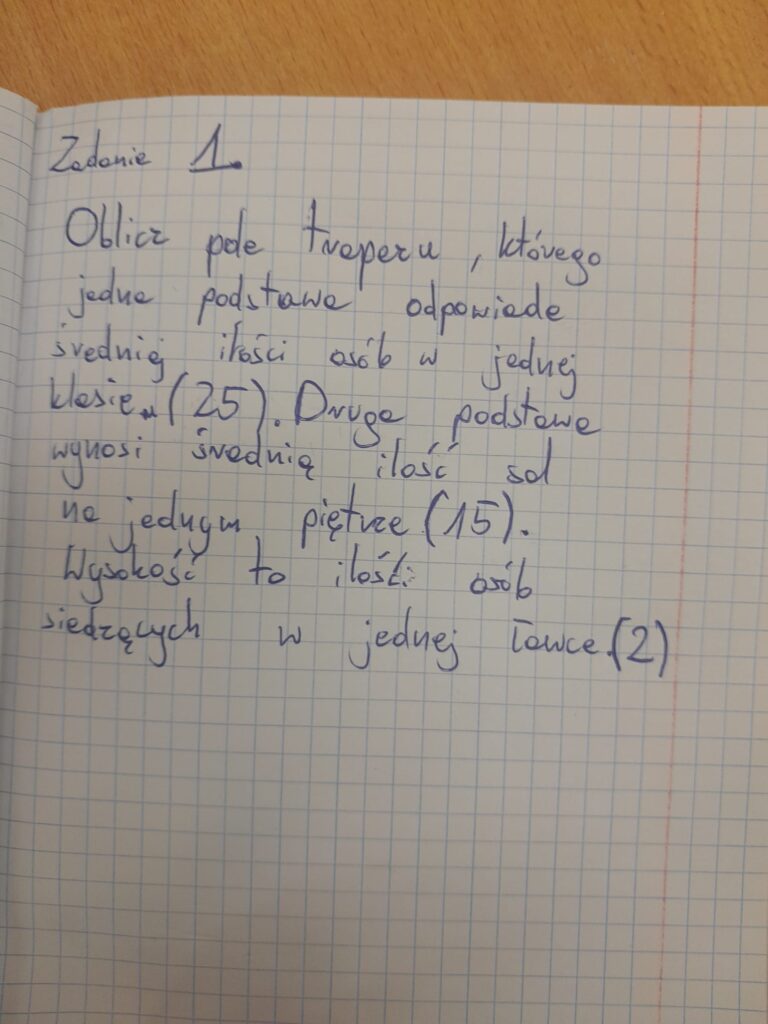 Zadanie 1.
Oblicz pole trapezu, którego
jedna podstawa odpowiada
średniej ilości osób w jednej
klasie (25). Druga podstawa
wynosi średnią ilość sal
na jednym piętrze (15).
Wysokość to ilość osób
siedzących w jednej ławce.(2)